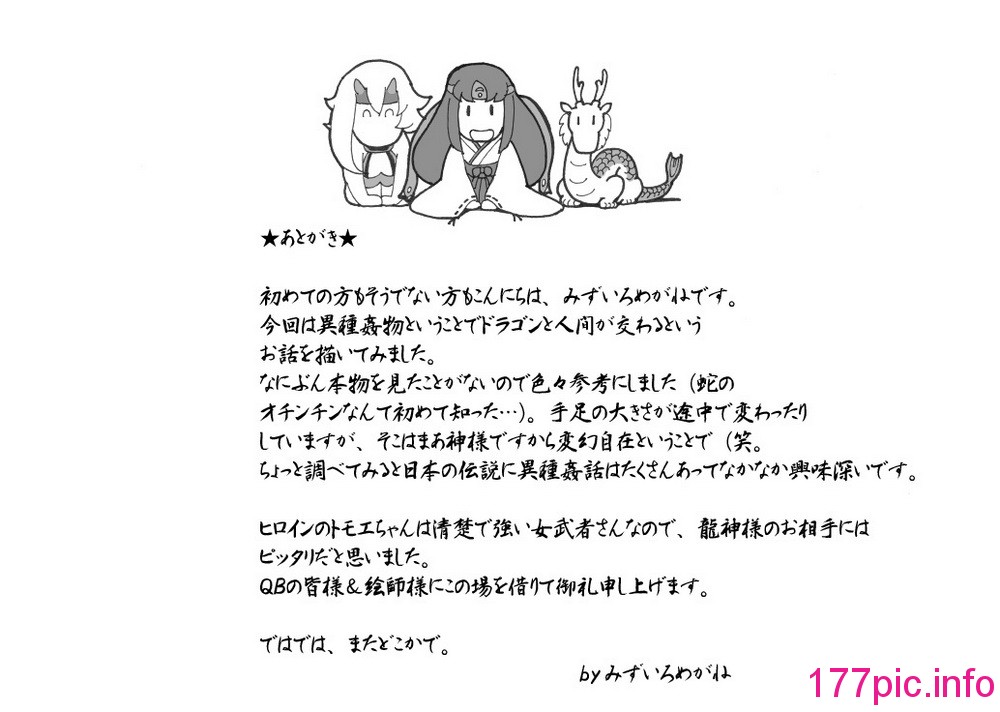 ★あとがき★
初めての方もそうでない方もこんにちは、みずいろめがねです。
今回は異種姦物ということでドラゴンと人間が交わるという
お話を描いてみました。
なにぶん本物を見たことがないので色々参考にしました（蛇の
オチンチンなんて初めて知った…）。手足の大きさが途中で変わったり
していますが、そこはまあ神様ですから変幻自在ということで（笑。
ちょっと調べてみると日本の伝説に異種姦話はたくさんあってなかなか興味深いです。
ヒロインのトモエちゃんは清楚で強い女武者さんなので、龍神様のお相手には
ピッタリだと思いました。
QBの皆様＆絵師様にこの場を借りて御礼申し上げます。
ではでは、またどこかで。
byみずいろめがね
177pic.info